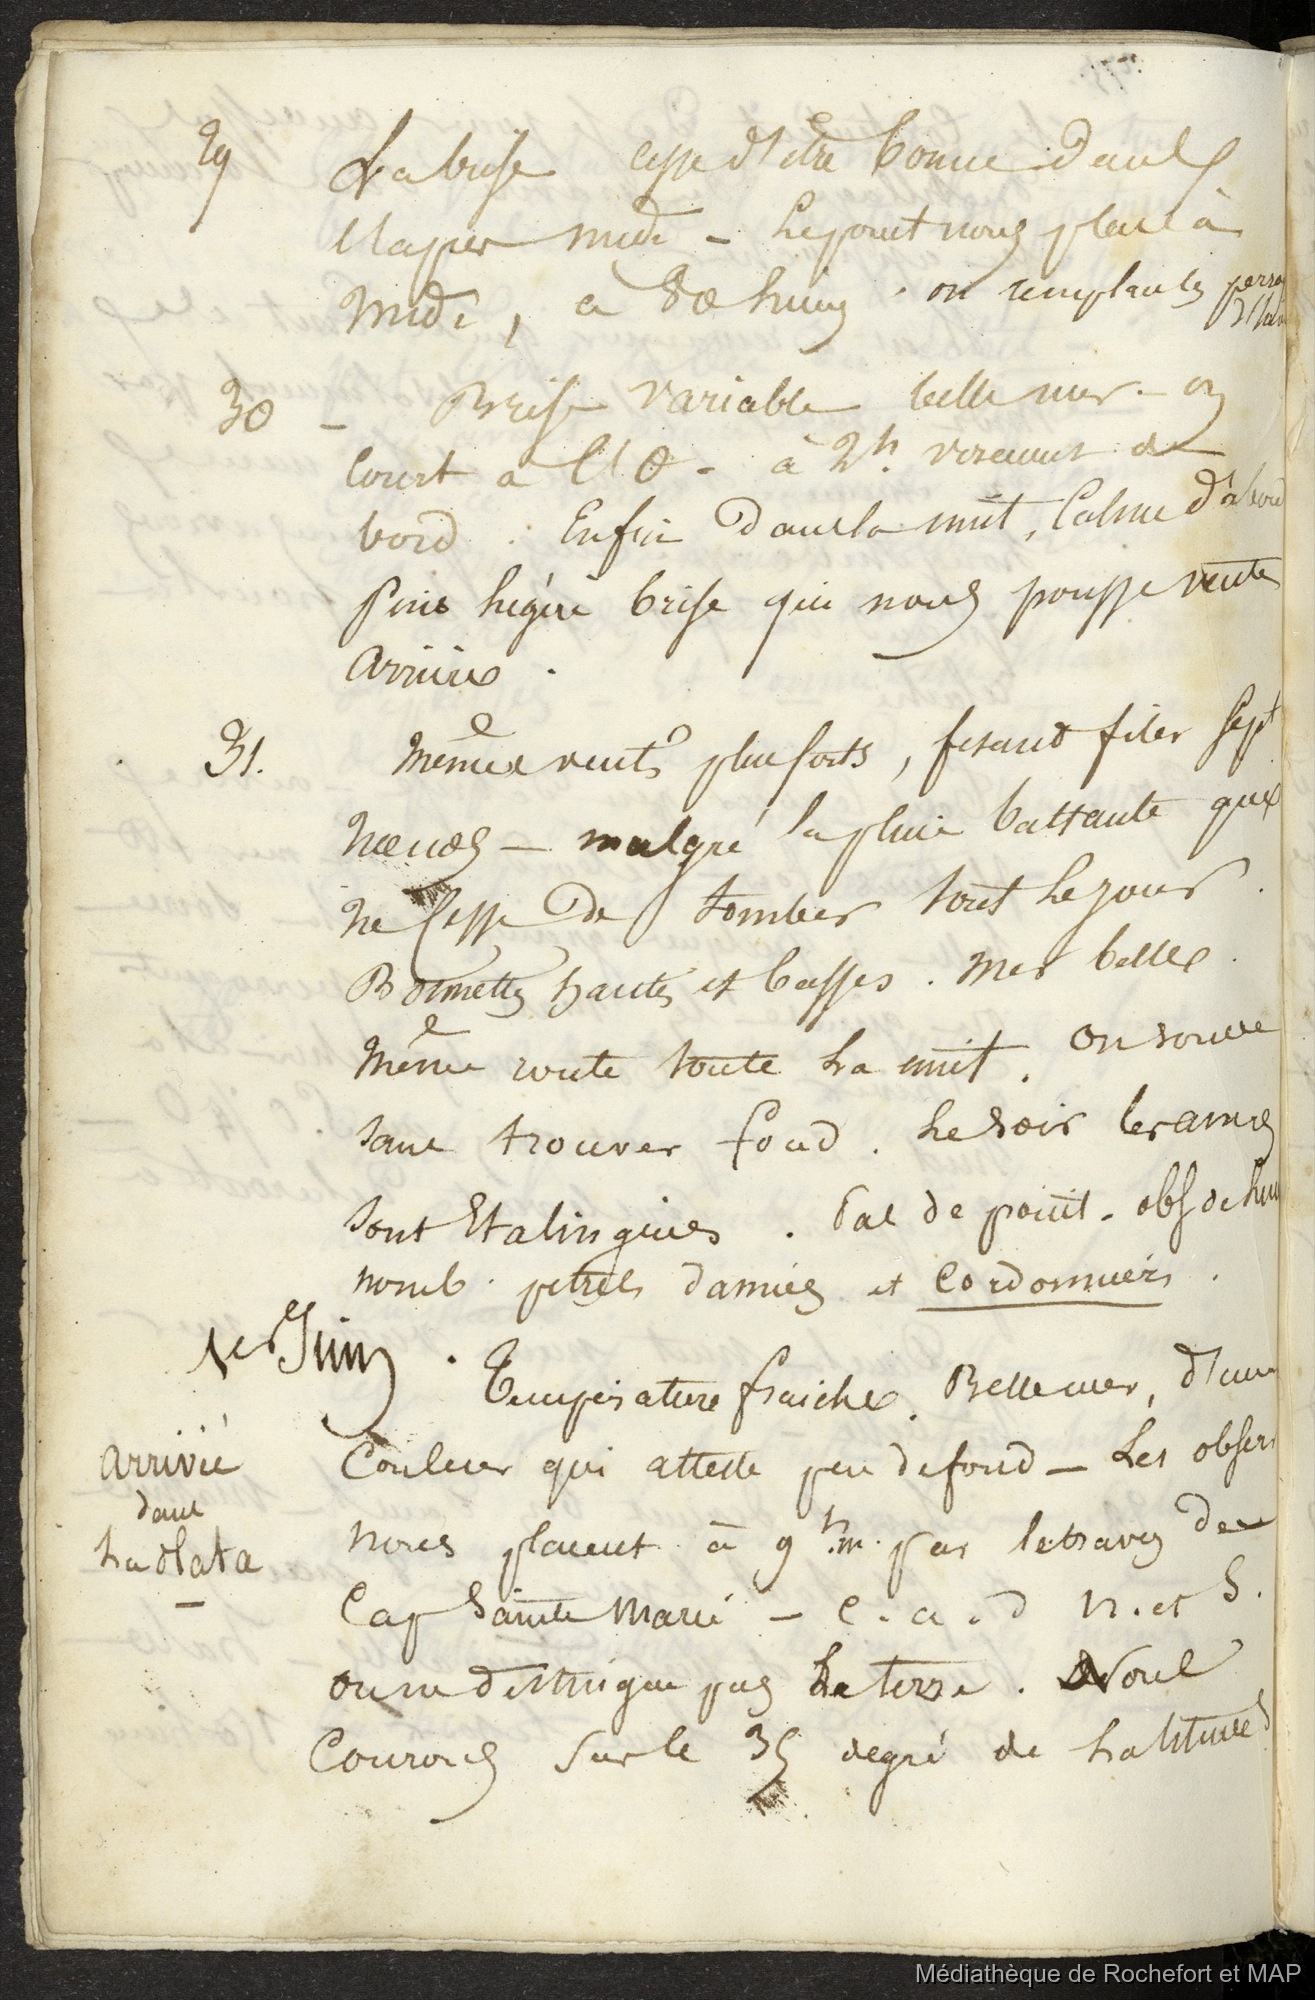 29 La brise cesse d'être bonne dans
l'apres midi - Le point nous place à
Midi, a 80 lieues. on remplace les
30 - Brise variable belle mer - on
Court a l'O - à 2h. virement de
bord. Enfin dans la nuit, Calme d'abord
puis légère brise qui nous pousse vente
arriere.
31. Même vents plus forts, fesant filer sept
Noeuds - malgré la pluie battante qui
ne Cesse de tomber tout le jour.
Bonnettes hautes et basses. Mer belle.
Même route toute la nuit. On sonde
sans trouver fond. Le soir les ancres
sont Etalinguées. Pas de point. obs de
nomb. petrels damiers et Cordonniers.
1er Juin. Température fraiche. Belle mer, d'une
Couleur qui atteste peu de fond - Les obser
nous placent à 9h.m. par le travers de
Cap Sainte Marie - c.a.d N. et S.
on ne distingue pas la terre. Nous
Courons sur le 35 degré de latitude
arrivée
dans
La Plata
Médiathèque de Rochefort et MAP